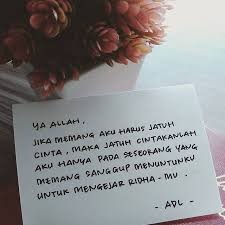 YA ALLAH,
JIKA MEMANG AKU HARUS JATUH
CINTA, MAKA JATUH CINTAKANLAH
AKU HANYA PADA SESEORANG YANG
MEMANG SANGGUP MENUNTUNKU
UNTUK MENGEJAR RIDHA-MU.
- ADL -